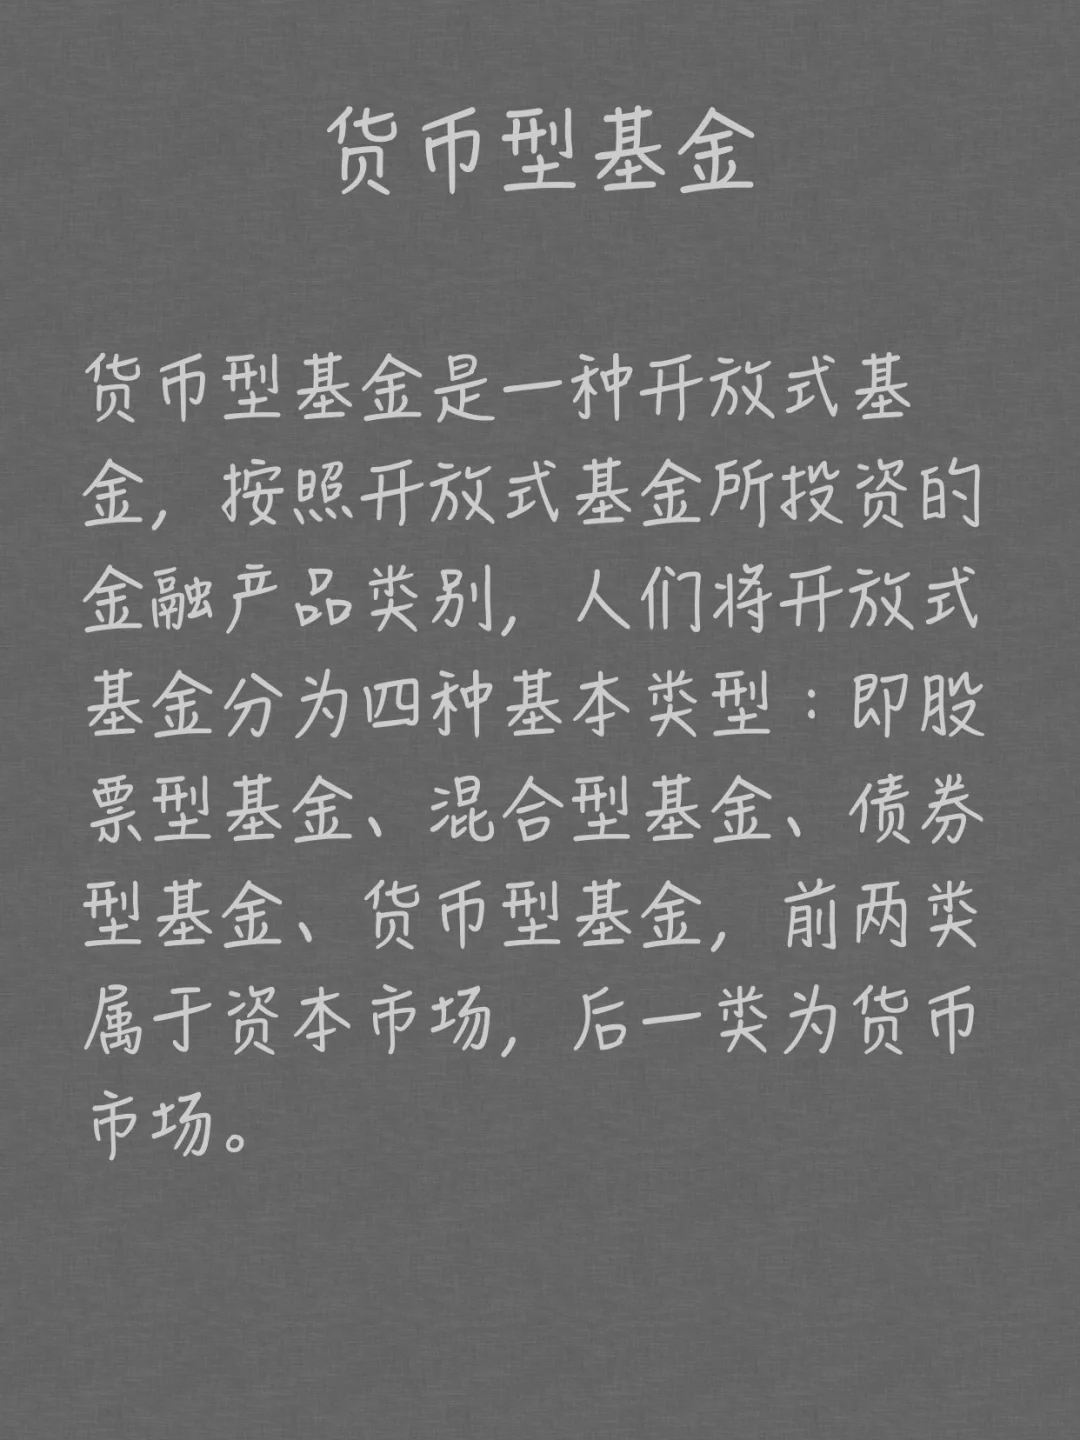 货币型基金
货币型基金是一种开放式基
金，按照开放式基金所投资的
金融产品类别，人们将开放式
基金分为四种基本类型：即股
票型基金、混合型基金、债券
型基金、货币型基金，前两类
属于资本市场，后一类为货币
市场。